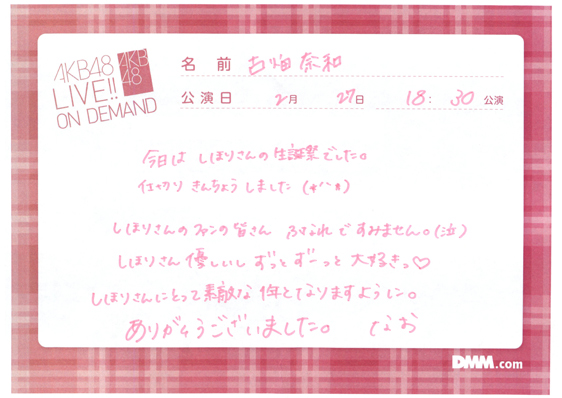 AKB48
LIVE!!
ON DEMAND
AKB
48
名 前 古畑奈和
公演日 2月 27日 18:30 公演
今日は しほりさんの生誕祭でした。
仕切り きんちょう しました (*^^*)
しほりさんのファンの皆さん ふなれ ですみません。(泣)
しほりさん 優しいし ずっと ずーっと 大好きっ♡
しほりさんにとって 素敵な 1年となりますように。
ありがとうございました。 なお
DMM.com